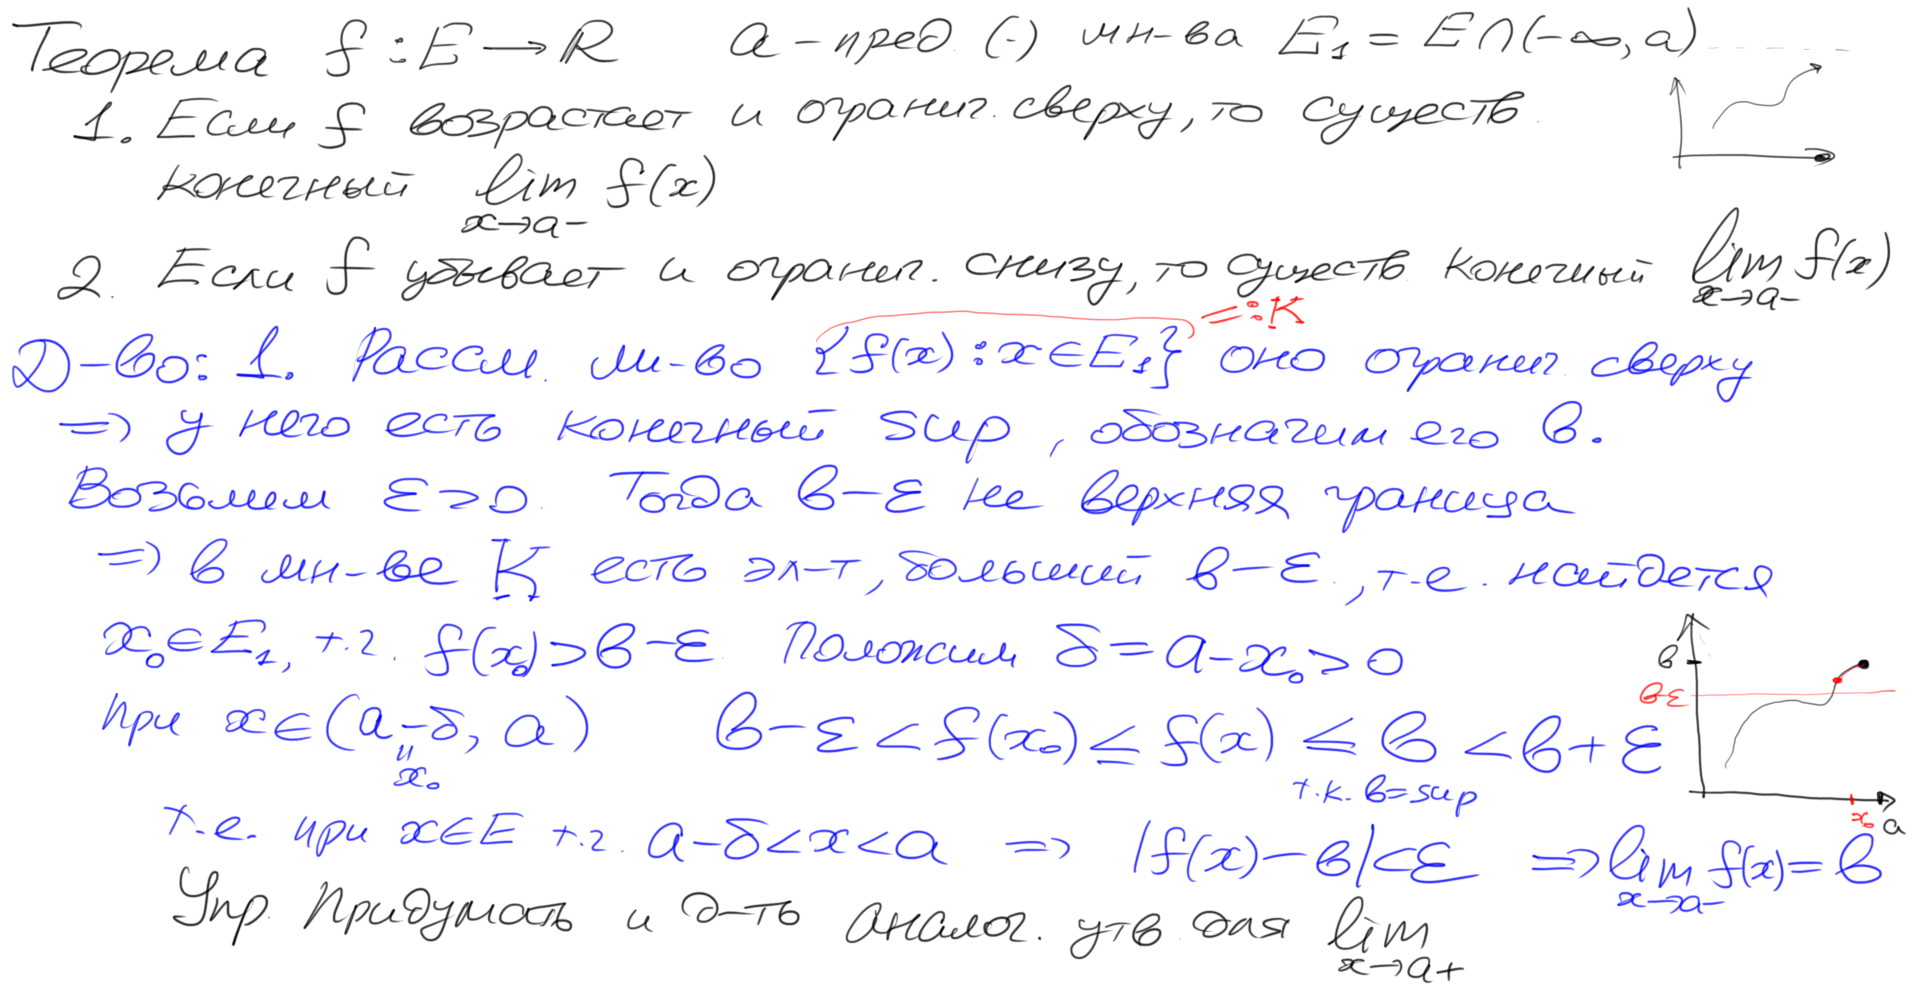 Теорема f : E → R a – пред. (·) мн-ва E₁ = E ∩ (-∞, a)
1. Если f возрастает и огранич. сверху, то существ.
конечный lim f(x)
x→a-
2. Если f убывает и огранич. снизу, то существ. конечный lim f(x)
x→a-
=: K
Д-во: 1. Рассм. мн-во {f(x) : x ∈ E₁} оно огранич. сверху
=> у него есть конечный sup, обозначим его b.
Возьмем ε > 0. Тогда b – ε не верхняя граница
=> в мн-ве K есть эл-т, больший b – ε, т.е. найдется
x₀ ∈ E₁, т.ч. f(x₀) > b – ε Положим δ = a – x₀ > 0
b
b-ε
при x ∈ (a – δ, a) b – ε < f(x₀) ≤ f(x) ≤ b < b + ε
"
x₀
т.к. b = sup
x₀ a
т.е. при x ∈ E т.ч. a – δ < x < a => |f(x) – b| < ε => lim f(x) = b
x→a-
Упр. Придумать и д-ть аналог. утв. для lim
x→a+